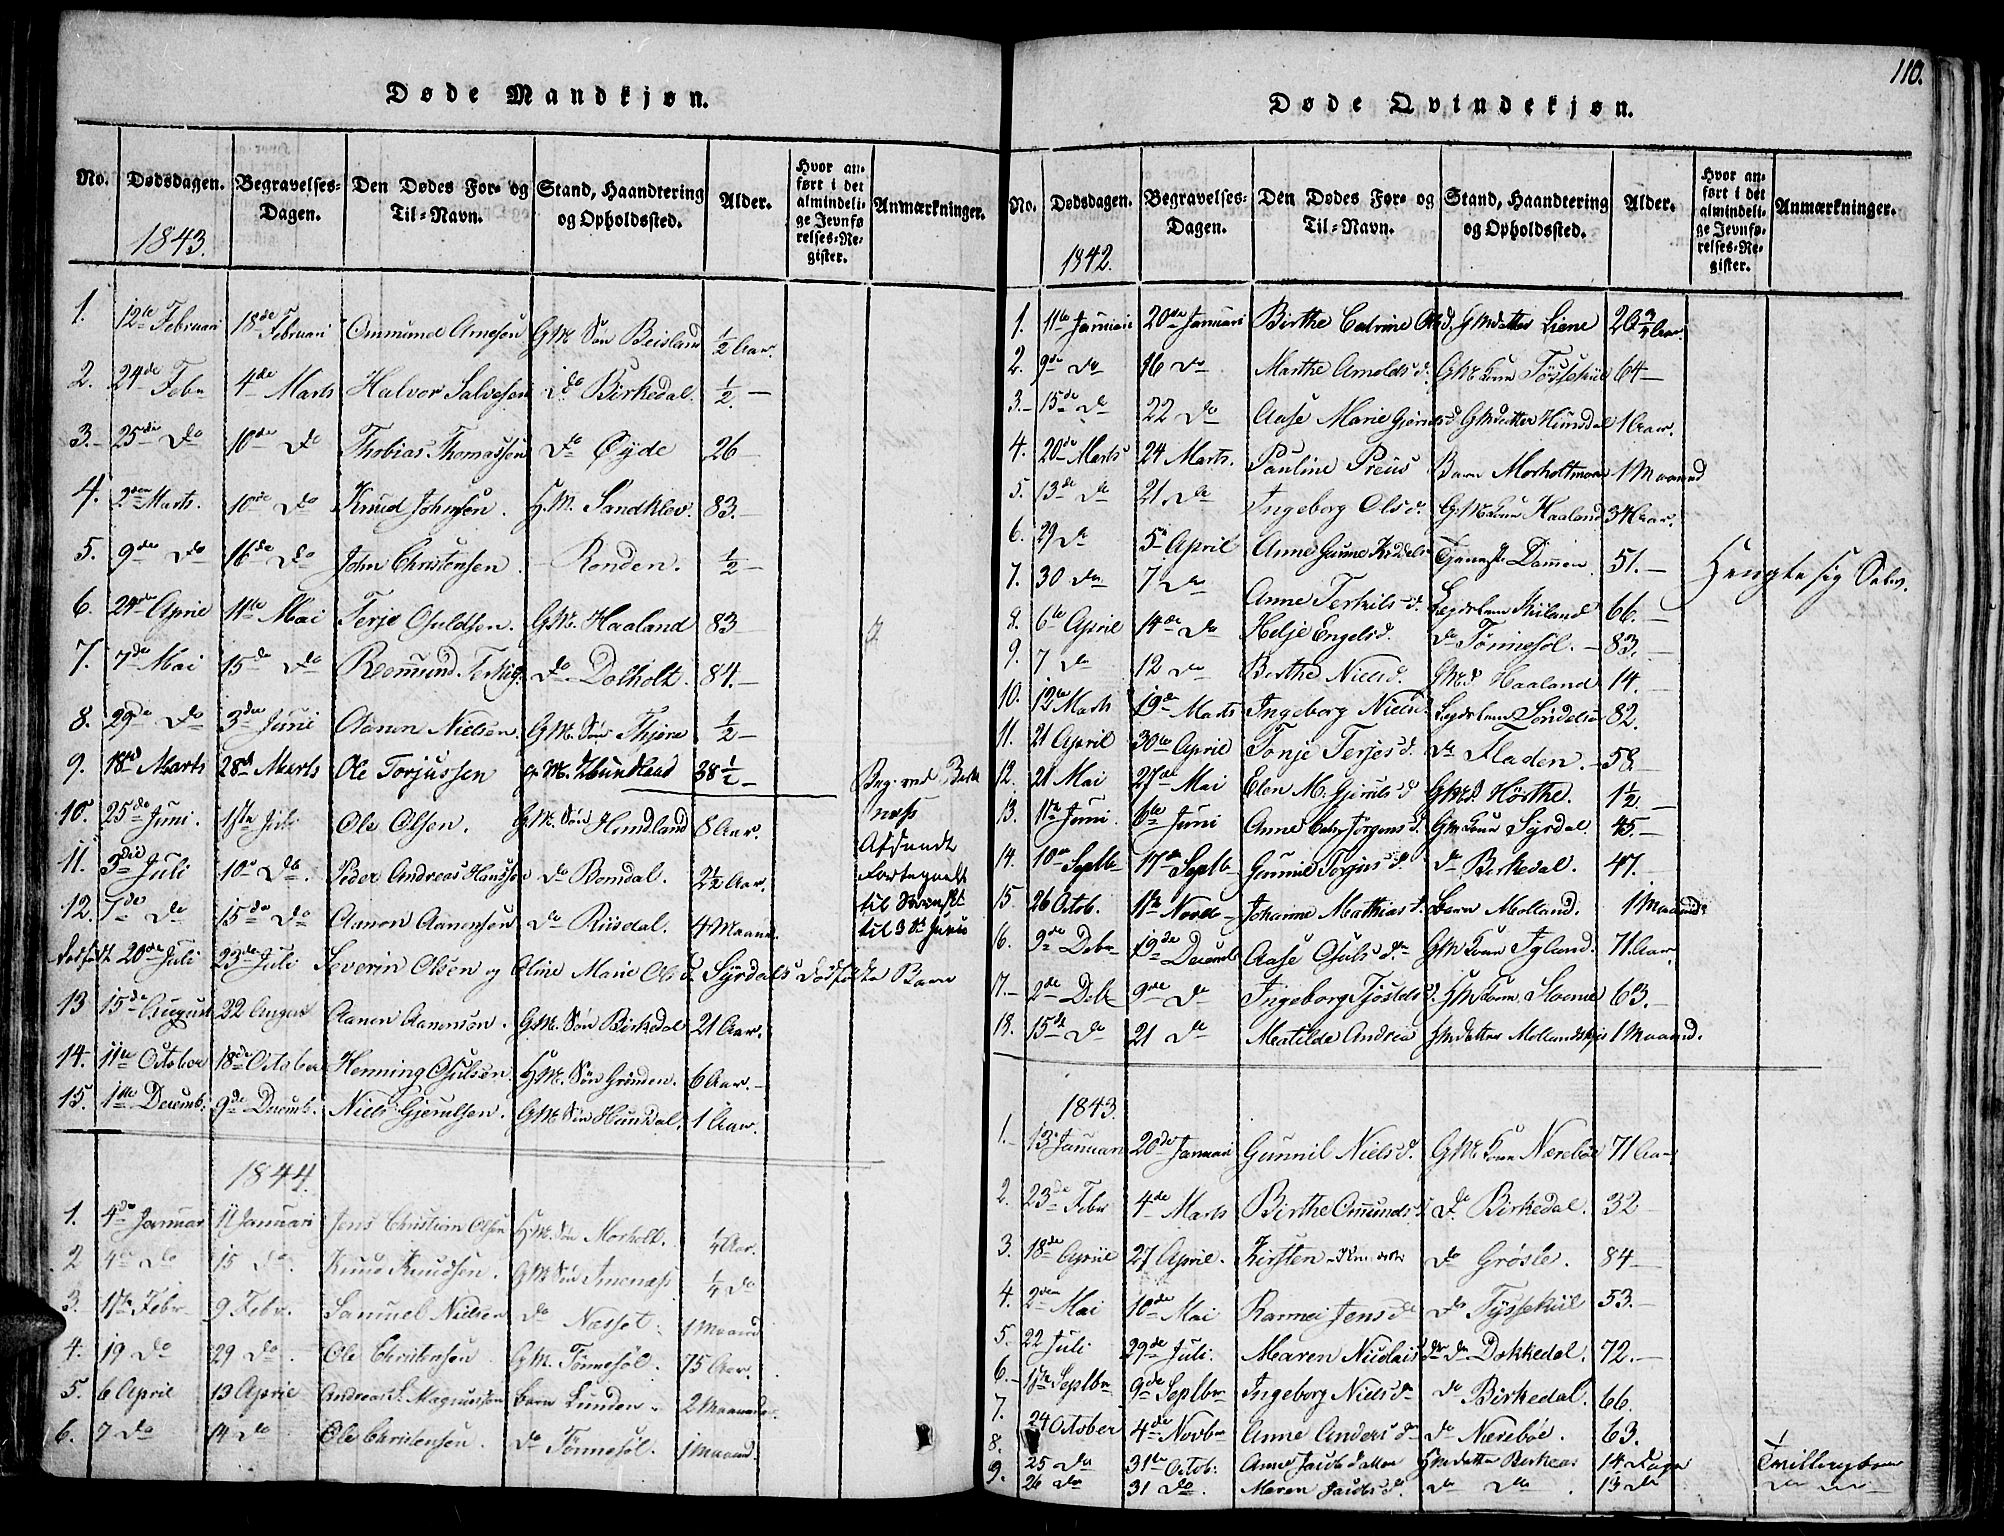 Døde Mandkjøn.
No. Dødsdagen. Begravelses-Dagen. Den Dødes For- og Til-Navn. Stand, Haandtering og Opholdssted. Alder. Hvor anført i det almindelige Jevnførelses-Register. Anmærkninger.
1843.
1. 12te Februari 18de Februari Ommund Arnesøn G.M. Søn Beisland ½ Aar.
2. 24de Febr 4de Marts Halvor Salvesen do Birkedal. ½ —
3. 25de Do 10de Do Thobias Thomassøn Do Øyde 26 —
4. 2den Marts. 10de Do Knud Johnsøn. H.M. Sandklev. 83. —
5. 9de Do 16de Do John Christensen. Ronden. ½ —
6. 24de April 11te Mai Terje Osuldsøn. G.M. Haaland 83 —
7. 7de Mai 15de Do Romund Do Dolholt. 84. —
8. 29de Do 3die Juni Aanon Nielsøn. G.M. Søn ½ —
9. 18de Marts 28de Marts Ole Torjussen G.M. Hundland 38 ½ —
Beg. ved
10. 25de Juni. 1ste Juli Ole Olsen. G.M. Søn Hundland 8 Aar.
11. 3die Juli 10de Do. Peder Andreas Hanssøn Do Bomdal. 2½ Aar.
12. 7de Do 15de Do Aanon Aanensøn Do Riisdal. 4 Maaned
Afsendt
Fortegnelse
til
til 3die Junii
Dødfødt 20de Juli 23de Juli Severin Olsen og Oline Marie Olsd. Syrdals Dødfødte Barn
13 15de August 22 August Aanon Aanensøn. G.M. Søn Birkedal 21 Aar.
14. 11te October 18de October Henning Osulsøn. H.M. Søn Grönden. 6 Aar. —
15. 1ste Decemb. 9de Decemb. Niels Gjerulsen. G.M. Søn Hunsdal. 1 Aar.
1844.
1. 4de Januar 11 Januari Jens Christian Olsen H.M. Søn Morholt. ¼ Aar.
2 4de Do 15 Do. Knud Knudsen. G.M. Søn Imenæs ¼ Do
3. 1ste Febr 9 Febr. Samuel Nielsen Do Næsset. 1 Maaned
4. 19 Do 29 Do. Ole Christensøn G.M. Tönnesöl. 75 Aar.
5. 6 April 13 April Andreas Magnussøn Barn Lunden. 2 Maaneder.
6. 7 Do 14 Do. Ole Christensøn. Do Tönnesöl. 1 Maaned.
110.
Døde Qvindekjøn.
No. Dødsdagen. Begravelses-Dagen. Den Dødes For- og Til-Navn. Stand, Haandtering og Opholdssted. Alder. Hvor anført i det almindelige Jevnførelses-Register. Anmærkninger.
1842.
1. 11te Januari 20de Januari Birthe Catrine Olsd. GMdatter Liene 20¾ Aar.
2. 9de Do 16 Do Marthe Arnoldsd. G.M. Kone Tösseküil 64 —
3. — 15de Do 22 Do Aase Marie GMdatter Hunsdal 1 Aar.
4. 20de Marts 24 Marts. Pauline Preus Barn Morholtmoen 1 Maaned
5. 13de Do 21 Do Ingeborg Olsd. G.M. Kone Haaland 34 Aar.
6. 29 Do 5te April Anne Gunne Tjenest. Dammen 51. —
7. 30 Do 7 Do Anne Terkilsd. Lægdslem 66. —
Hængte sig Selv.
8. 6te April 14de Do Helje Engelsd. Do Tönnesöl. — 83. —
9. 7 Do 12 Do Berthe Nielsd. G.M.d. Haaland 14. —
10. 12te Marts 19de Marts Ingeborg Nielsd. Lægdslem 82. —
11. 21 April 30te April Tonje Terjesd. Do Fladen. — 58. —
12. 21 Mai 27de Mai Elen M. Gjerulsd G.M.d. Hörthe. 1½ —
13. 11te Juni 6te Juni Anne Cath Jörgensd. G.M. Kone Syrdal. 45. —
14. 10de Septb. 17de Septb. Gunnil Torjusd. Do Birkedal. 47. —
15 26 Octob. 1ste Novbr — Johanne Mathiasd. Barn Molland. 1 Maaned.
16. 9de Debr 19de Decemb Aase Osulsd. G.M. Kone Igland. 71 Aar.
17. — 2de Deb. 9de Do Ingeborg Tjöstelsd. H.M. Kone Stoene 63. —
18. 15de Do 21 Do Matilde Andrea H.M. datter 1 Maaned.
1843.
1. — 13de Januari 20de Januari Gunnil Nielsd. G.M. Kone Nærebö 71 Aar
2. 23de Febr 4de Marts Birthe Ommundsd Do Birkedal. 32
3. 18de April 27 April. Kirsten Do Grösle. 84 —
4. 2den Mai 10de Mai Rannei Jensd Do Tyssekiil 53. —
5. 22 Juli 29de Juli. Maren Nicolaisd Do Dokkedal. 72. —
6. — 1ste Septbr 9de Septbr Ingeborg Nielsd Do Birkedal. 66.
7. 24 October 4de Novbr Anne Andersd Do Nærebøe. 63.
8. 25 Do 31te Octob. Anne Jacobsdatter H.M. datter Birkenes 14 Dage Tvillingbørn
9. 26 Do 31 Do. Maren Jacobsd. Do Do. 15 Do Do